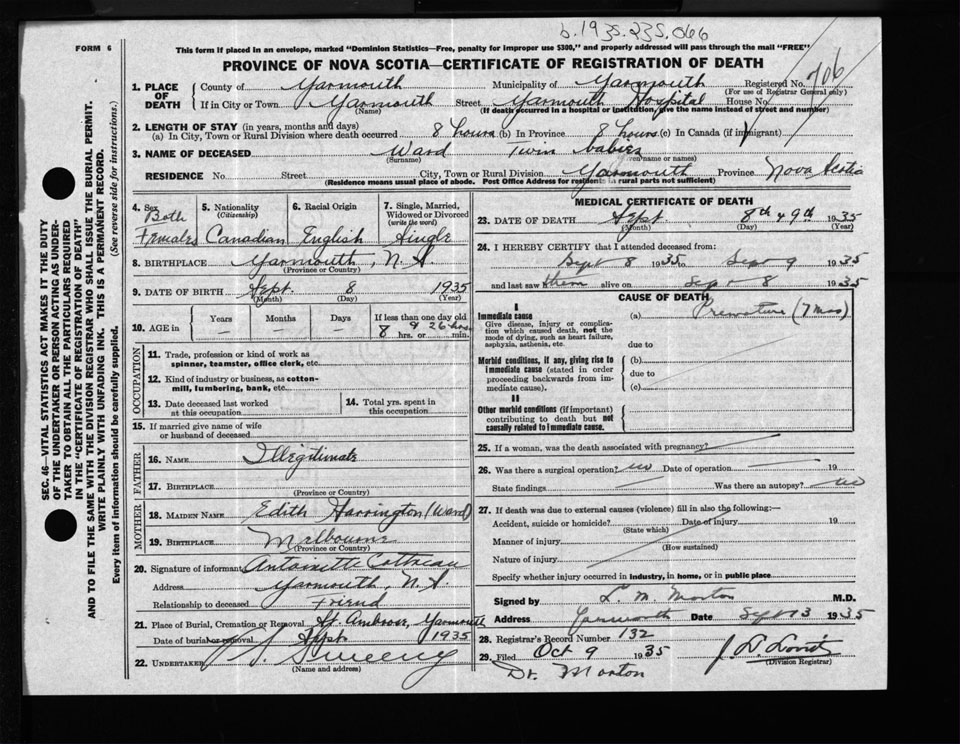 b. 1935.235.066
FORM 6
This form if placed in an envelope, marked "Dominion Statistics—Free, penalty for improper use $300," and properly addressed will pass through the mail "FREE"
PROVINCE OF NOVA SCOTIA—CERTIFICATE OF REGISTRATION OF DEATH
1. PLACE OF DEATH
County of Yarmouth Municipality of Yarmouth Registered No. 706
(For use of Registrar General only)
If in City or Town Yarmouth Street Yarmouth Hospital House No.
(If death occurred in a hospital or institution, give the name instead of street and number)
2. LENGTH OF STAY (in years, months and days)
(a) In City, Town or Rural Division where death occurred 8 hours (b) In Province 8 hours (c) In Canada (if immigrant)
3. NAME OF DECEASED Ward Twin babies
(Surname) (Given name or names)
RESIDENCE No. Street City, Town or Rural Division Yarmouth Province Nova Scotia
(Residence means usual place of abode. Post Office Address for residents in rural parts not sufficient)
4. Sex Both Females
5. Nationality (Citizenship) Canadian
6. Racial Origin English
7. Single, Married, Widowed or Divorced (write the word) Single
8. BIRTHPLACE Yarmouth, N.S.
(Province or Country)
9. DATE OF BIRTH Sept. 8 1935
(Month) (Day) (Year)
10. AGE in Years Months Days If less than one day old
— — — 8 9 26 hrs. or min.
OCCUPATION
11. Trade, profession or kind of work as spinner, teamster, office clerk, etc.
12. Kind of industry or business, as cotton-mill, lumbering, bank, etc.
13. Date deceased last worked at this occupation
14. Total yrs. spent in this occupation
15. If married give name of wife or husband of deceased
FATHER
16. NAME Illegitimate
17. BIRTHPLACE
(Province or Country)
MOTHER
18. MAIDEN NAME Edith Harrington (Ward)
19. BIRTHPLACE Melbourne
(Province or Country)
20. Signature of informant Antoinette Cottreau
Address Yarmouth, N.S.
Relationship to deceased Friend
21. Place of Burial, Cremation or Removal St. Ambrose, Yarmouth
Date of burial or removal Sept. 1935
22. UNDERTAKER J. Sweeny
(Name and address)
MEDICAL CERTIFICATE OF DEATH
23. DATE OF DEATH Sept. 8th & 9th 1935
(Month) (Day) (Year)
24. I HEREBY CERTIFY that I attended deceased from:
Sept 8 1935 to Sept 9 1935
and last saw them alive on Sept 8 1935
CAUSE OF DEATH
I
Immediate cause
Give disease, injury or complication which caused death, not the mode of dying, such as heart failure, asphyxia, asthenia, etc.
(a) Premature (7 Mos)
due to
Morbid conditions, if any, giving rise to immediate cause (stated in order proceeding backwards from immediate cause).
(b)
due to
(c)
II
Other morbid conditions (if important) contributing to death but not causally related to immediate cause.
25. If a woman, was the death associated with pregnancy?
26. Was there a surgical operation? no Date of operation 19
State findings Was there an autopsy? no
27. If death was due to external causes (violence) fill in also the following:—
Accident, suicide or homicide? Date of injury 19
(State which)
Manner of injury
(How sustained)
Nature of injury
Specify whether injury occurred in industry, in home, or in public place
Signed by L. M. Morton M.D.
Address Yarmouth Date Sept 13 1935
28. Registrar's Record Number 132
29. Filed Oct 9 1935
(Division Registrar)
Dr. Morton
SEC. 46—VITAL STATISTICS ACT MAKES IT THE DUTY
OF THE UNDERTAKER OR PERSON ACTING AS UNDER-
TAKER TO OBTAIN ALL THE PARTICULARS REQUIRED
IN THE "CERTIFICATE OF REGISTRATION OF DEATH"
AND TO FILE THE SAME WITH THE DIVISION REGISTRAR WHO SHALL ISSUE THE BURIAL PERMIT.
WRITE PLAINLY WITH UNFADING INK. THIS IS A PERMANENT RECORD.
Every item of information should be carefully supplied. (See reverse side for instructions.)